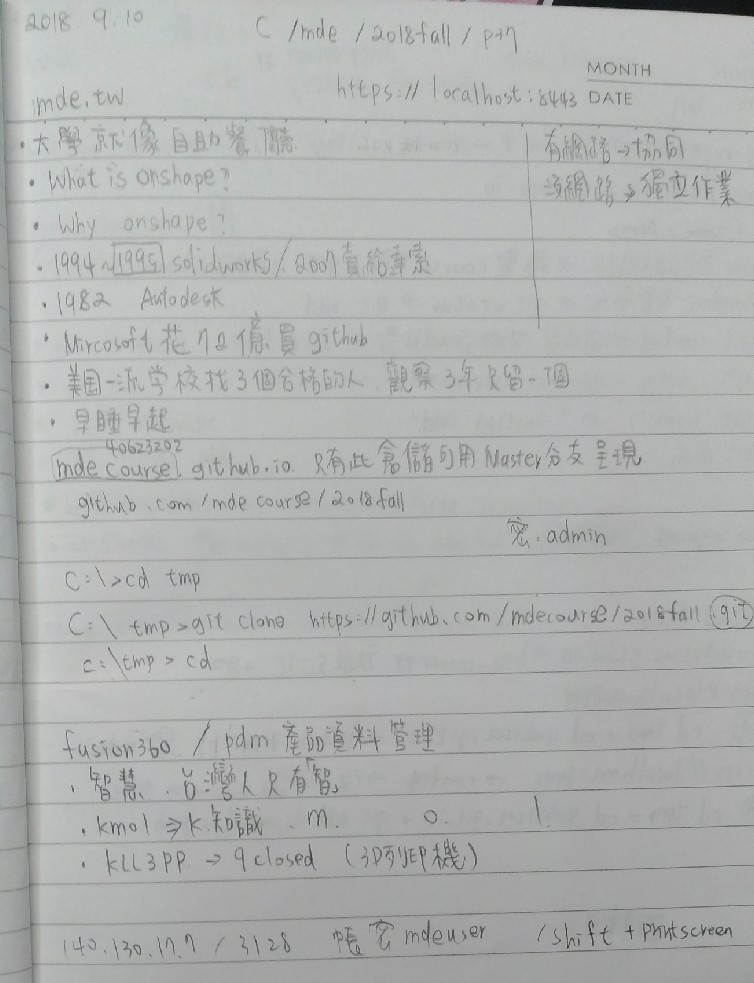 2018. 9. 10
C /mde / 2018fall / p37
MONTH
mde.tw
https:// localhost:8443 DATE
・大學就像自助餐廳
有網路→協同
沒網路→獨立作業
・What is onshape?
・Why onshape?
・1994~1995 solidworks / 2007賣給達索
・1982 Autodesk
・Mircosoft 花72億買github
・美国一流学校找3個合格的人.觀察3年只留一個
・早睡早起
40623202
mde course. github.io. 只有此倉儲可用Master分支呈現
github.com/mde course/2018fall
密.admin
C:\>cd tmp
C:\ tmp>git clone https://github.com/mdecourse/2018fall .git
c:\tmp > cd
fusion360 / pdm 產品資料管理
・智慧.台灣人只有「智」
・kmol ⇒ k.知識 . m. o. l.
・kLL3PP → 9closed (3D列印機)
140.130.17.7 / 3128 帳密 mdeuser /shift + printscreen